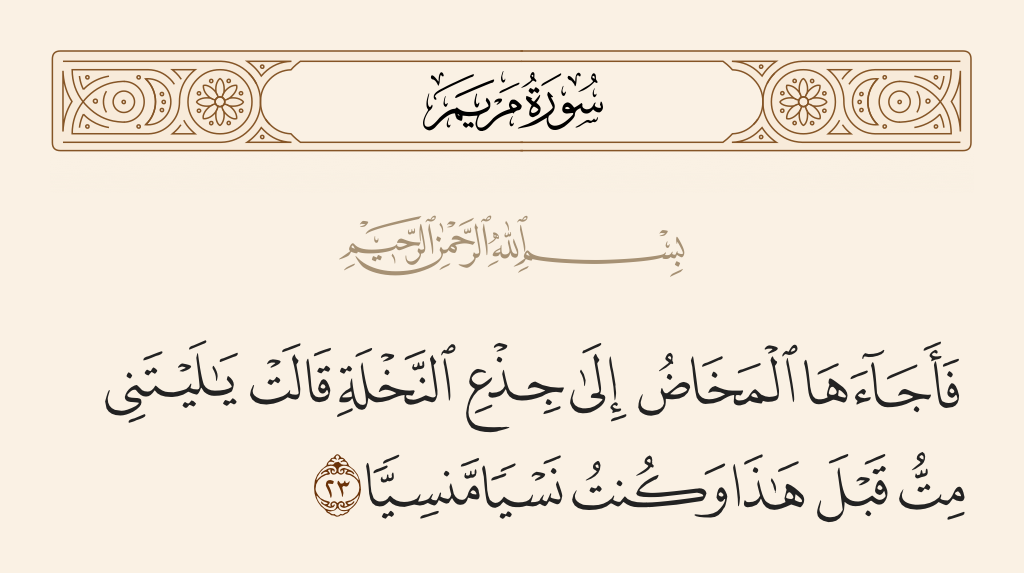 سُورَةُ مَرْيَمَ
بِسْمِ ٱللَّهِ ٱلرَّحْمَٰنِ ٱلرَّحِيمِ
فَأَجَآءَهَا ٱلْمَخَاضُ إِلَىٰ جِذْعِ ٱلنَّخْلَةِ قَالَتْ يَٰلَيْتَنِى
مِتُّ قَبْلَ هَٰذَا وَكُنتُ نَسْيًا مَّنسِيًّا ٢٣